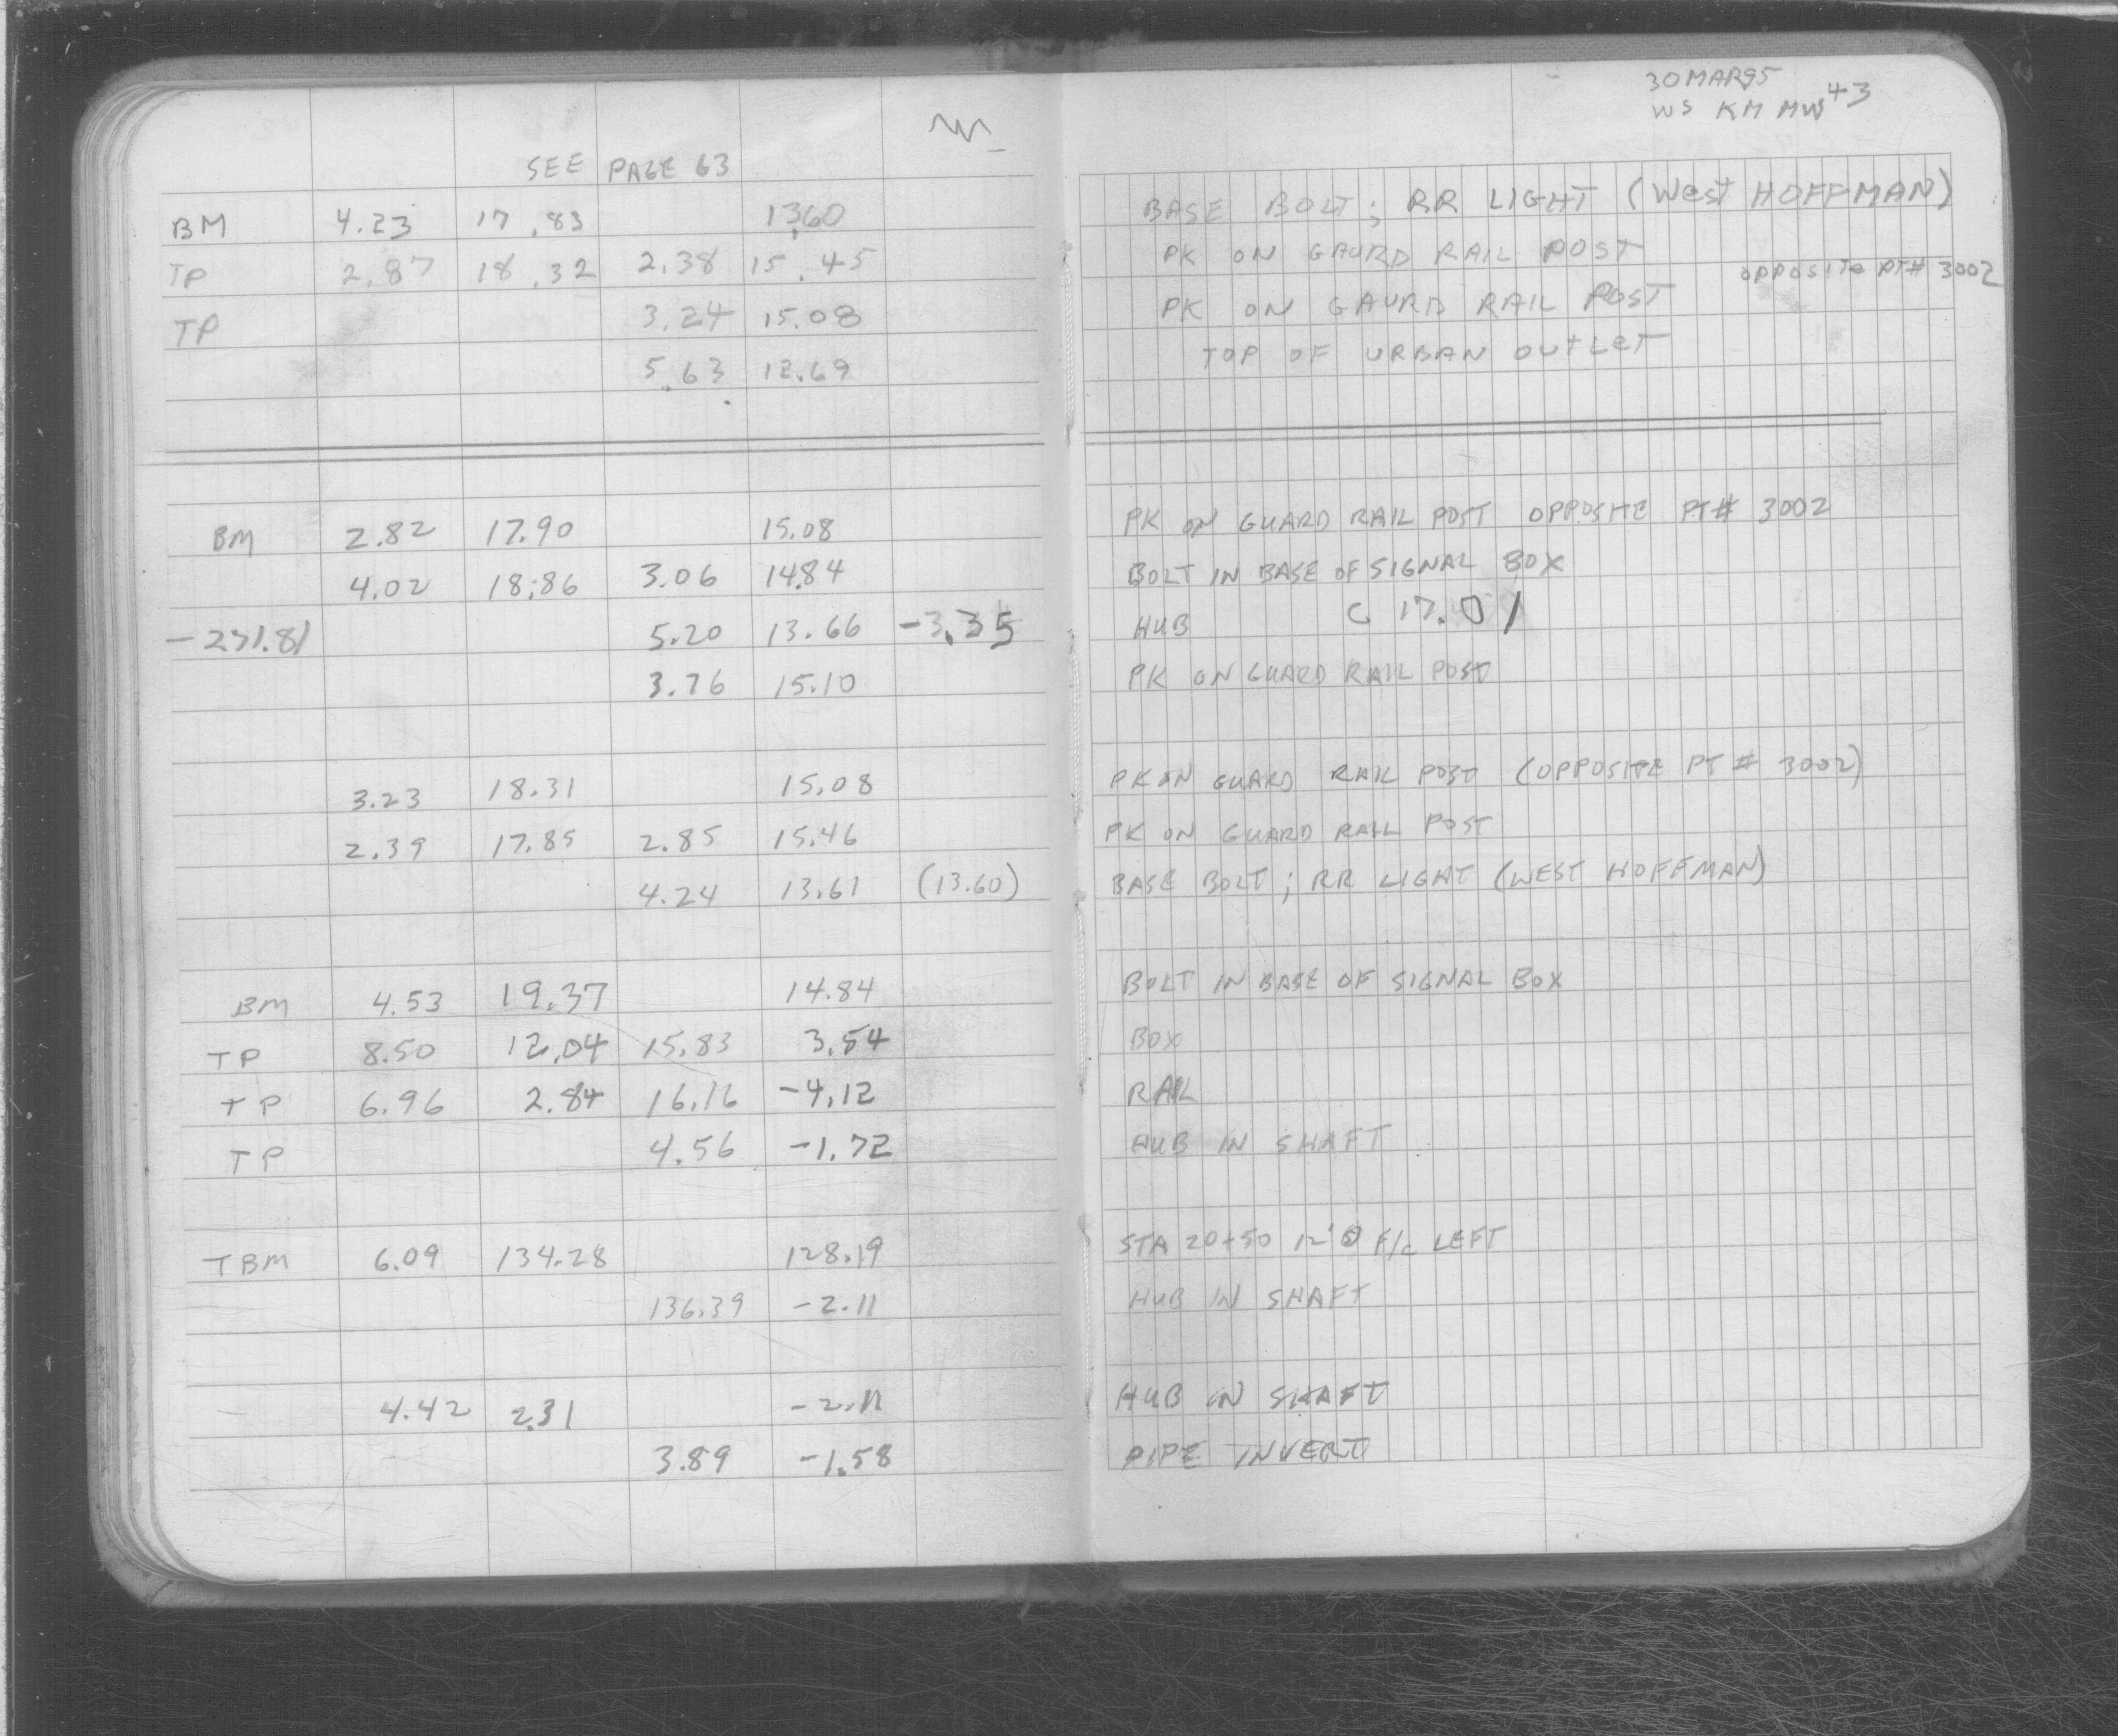 30 MAR95
WS KM MW 43
SEE PAGE 63
BM 4.23 17.83 13.60 BASE BOLT; RR LIGHT (West HOFFMAN)
TP 2.87 18.32 2.38 15.45 PK ON GAURD RAIL POST
OPPOSITE PT# 3002
TP 3.24 15.08 PK ON GAURD RAIL POST
5.63 12.69 TOP OF URBAN OUTLET
BM 2.82 17.90 15.08 PK ON GUARD RAIL POST OPPOSITE PT# 3002
4.02 18.86 3.06 14.84 BOLT IN BASE OF SIGNAL BOX
-271.81 5.20 13.66 -3.35 HUB C 17.01
3.76 15.10 PK ON GUARD RAIL POST
3.23 18.31 15.08 PK ON GUARD RAIL POST (OPPOSITE PT # 3002)
2.39 17.85 2.85 15.46 PK ON GUARD RAIL POST
4.24 13.61 (13.60) BASE BOLT; RR LIGHT (WEST HOFFMAN)
BM 4.53 19.37 14.84 BOLT IN BASE OF SIGNAL BOX
TP 8.50 12.04 15.83 3.54 BOX
TP 6.96 2.84 16.16 -4.12 RAIL
TP 4.56 -1.72 HUB IN SHAFT
TBM 6.09 134.28 128.19 STA 20+50 12' F/C LEFT
136.39 -2.11 HUB IN SHAFT
4.42 2.31 -2.11 HUB IN SHAFT
3.89 -1.58 PIPE INVERT